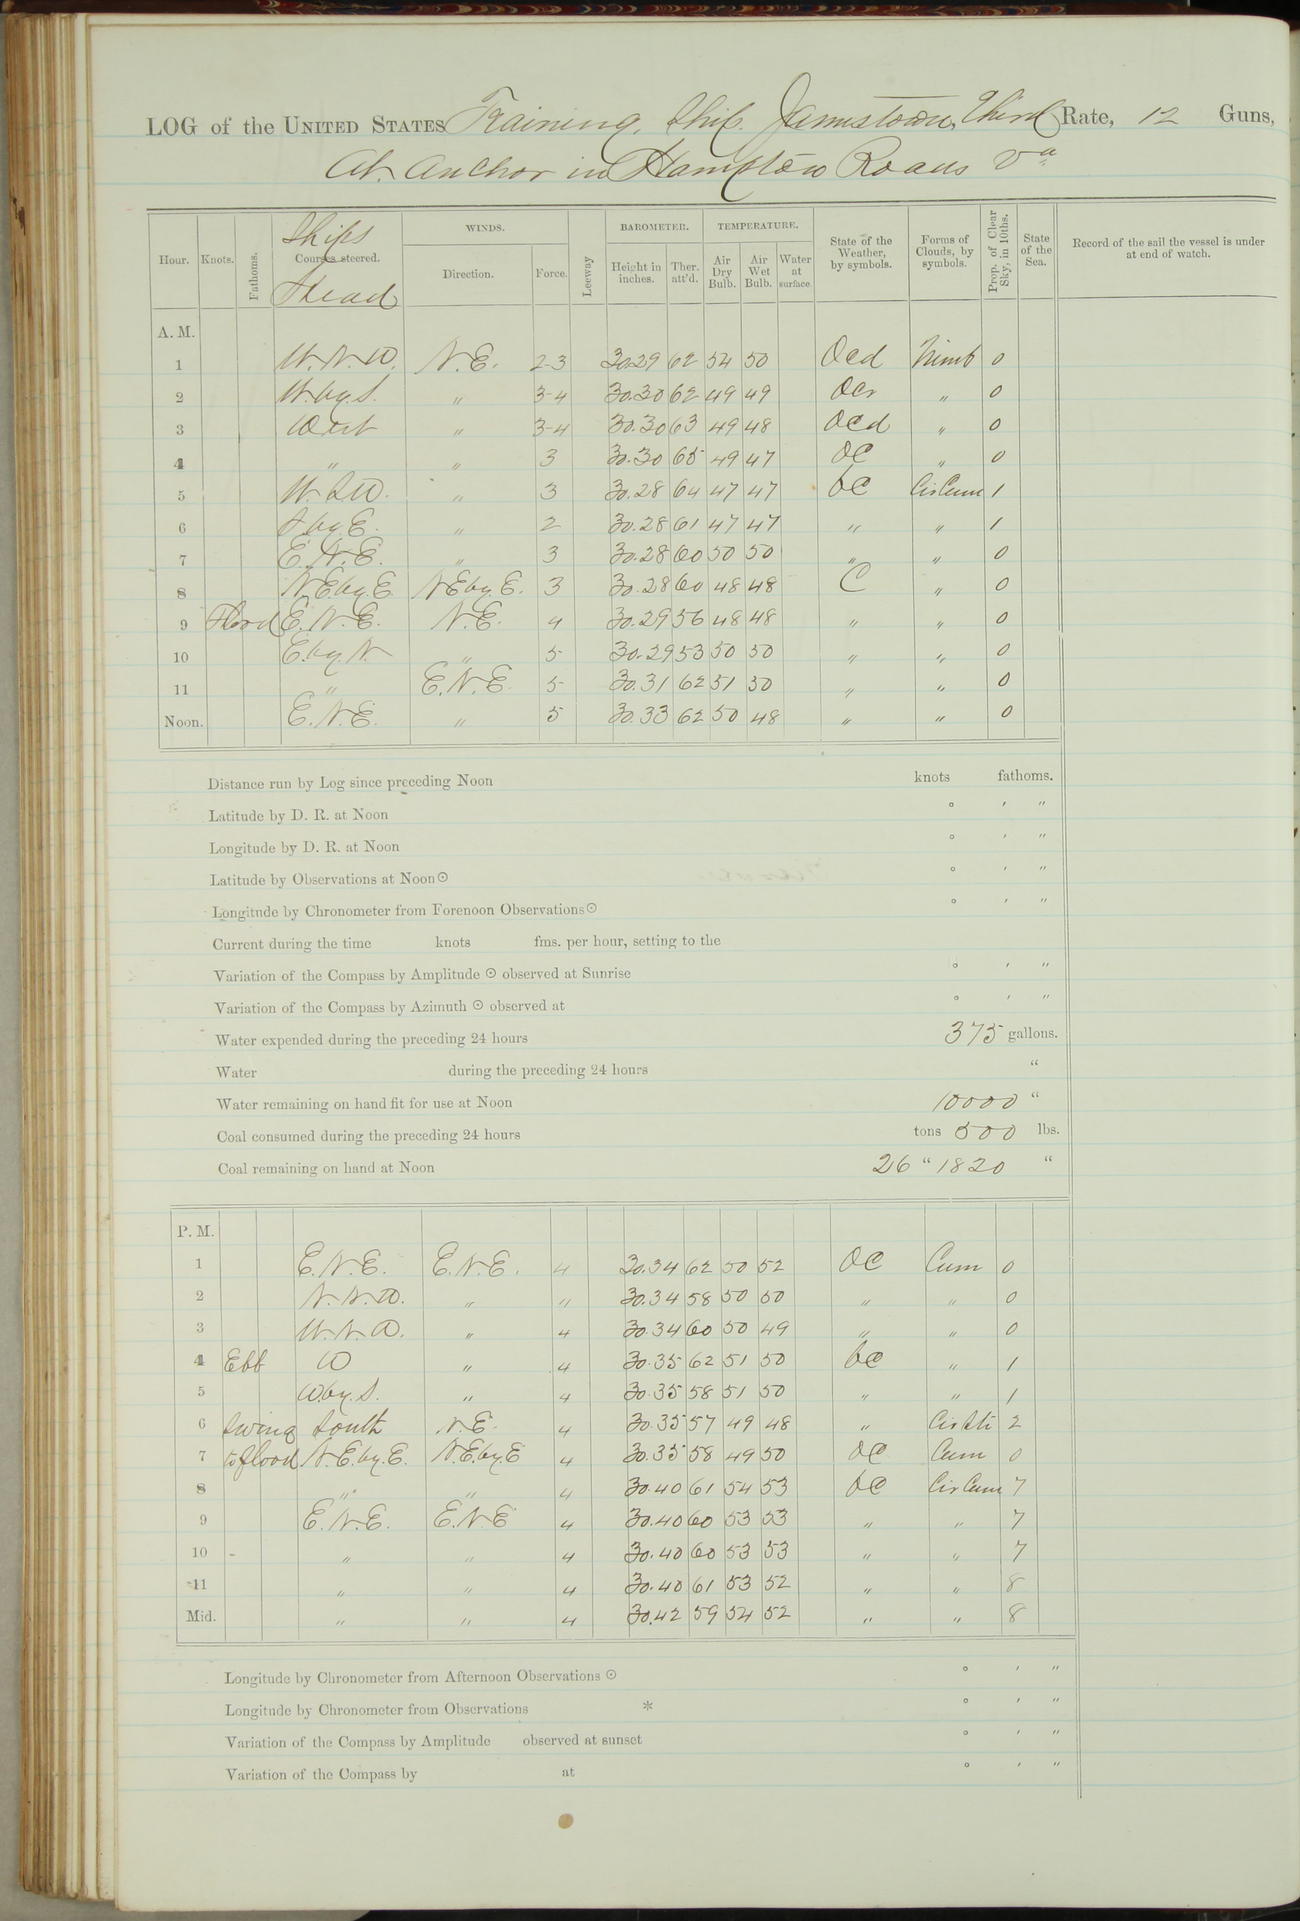 LOG of the UNITED STATES Training Ship Jamestown, Third Rate, 12 Guns,
At Anchor in Hampton Roads Va
Hour. Knots. Fathoms. Ships Courses steered. Head WINDS. Direction. Force. Leeway BAROMETER. Height in inches. Ther. att'd. TEMPERATURE. Air Dry Bulb. Air Wet Bulb. Water at surface. State of the Weather, by symbols. Forms of Clouds, by symbols. Prop. of Clear Sky, in 10ths. State of the Sea. Record of the sail the vessel is under at end of watch.
A. M.
1 W.N.W. N.E. 2-3 30.29 62 54 50 Ocd Nimb 0
2 W.by.S. " 3-4 30.30 62 49 49 Ocr " 0
3 West " 3-4 30.30 63 49 48 Ocd " 0
4 " " 3 30.30 65 49 47 OC " 0
5 W.S.W. " 3 30.28 64 47 47 bC Cir Cum 1
6 S.by.E. " 2 30.28 61 47 47 " " 1
7 E.N.E. " 3 30.28 60 50 50 " " 0
8 N.E.by.E. N.E.by.E. 3 30.28 60 48 48 C " 0
9 Flood E.N.E. N.E. 4 30.29 56 48 48 " " 0
10 E.by.N. " 5 30.29 53 50 50 " " 0
11 " E.N.E. 5 30.31 62 51 50 " " 0
Noon. E.N.E. " 5 30.33 62 50 48 " " 0
Distance run by Log since preceding Noon knots fathoms.
Latitude by D. R. at Noon ° ' "
Longitude by D. R. at Noon ° ' "
Latitude by Observations at Noon ☉ ° ' "
Longitude by Chronometer from Forenoon Observations ☉ ° ' "
Current during the time knots fms. per hour, setting to the
Variation of the Compass by Amplitude ☉ observed at Sunrise ° ' "
Variation of the Compass by Azimuth ☉ observed at ° ' "
Water expended during the preceding 24 hours 375 gallons.
Water during the preceding 24 hours "
Water remaining on hand fit for use at Noon 10000 "
Coal consumed during the preceding 24 hours tons 500 lbs.
Coal remaining on hand at Noon 26 " 1820 "
P. M.
1 E.N.E. E.N.E. 4 30.34 62 50 52 OC Cum 0
2 N.N.W. " " 30.34 58 50 50 " " 0
3 W.N.W. " 4 30.34 60 50 49 " " 0
4 Ebb W " 4 30.35 62 51 50 bc " 1
5 W.by.S. " 4 30.35 58 51 50 " " 1
6 Swing South N.E. 4 30.35 57 49 48 " Cir Sti 2
7 to flood N.E.by.E. N.E.by.E 4 30.35 58 49 50 OC Cum 0
8 " " 4 30.40 61 54 53 bC Cir Cum 7
9 E.N.E. E.N.E 4 30.40 60 53 53 " " 7
10 " " 4 30.40 60 53 53 " " 7
11 " " 4 30.40 61 53 52 " " 8
Mid. " " 4 30.42 59 54 52 " " 8
Longitude by Chronometer from Afternoon Observations ☉ ° ' "
Longitude by Chronometer from Observations * ° ' "
Variation of the Compass by Amplitude observed at sunset ° ' "
Variation of the Compass by at ° ' "